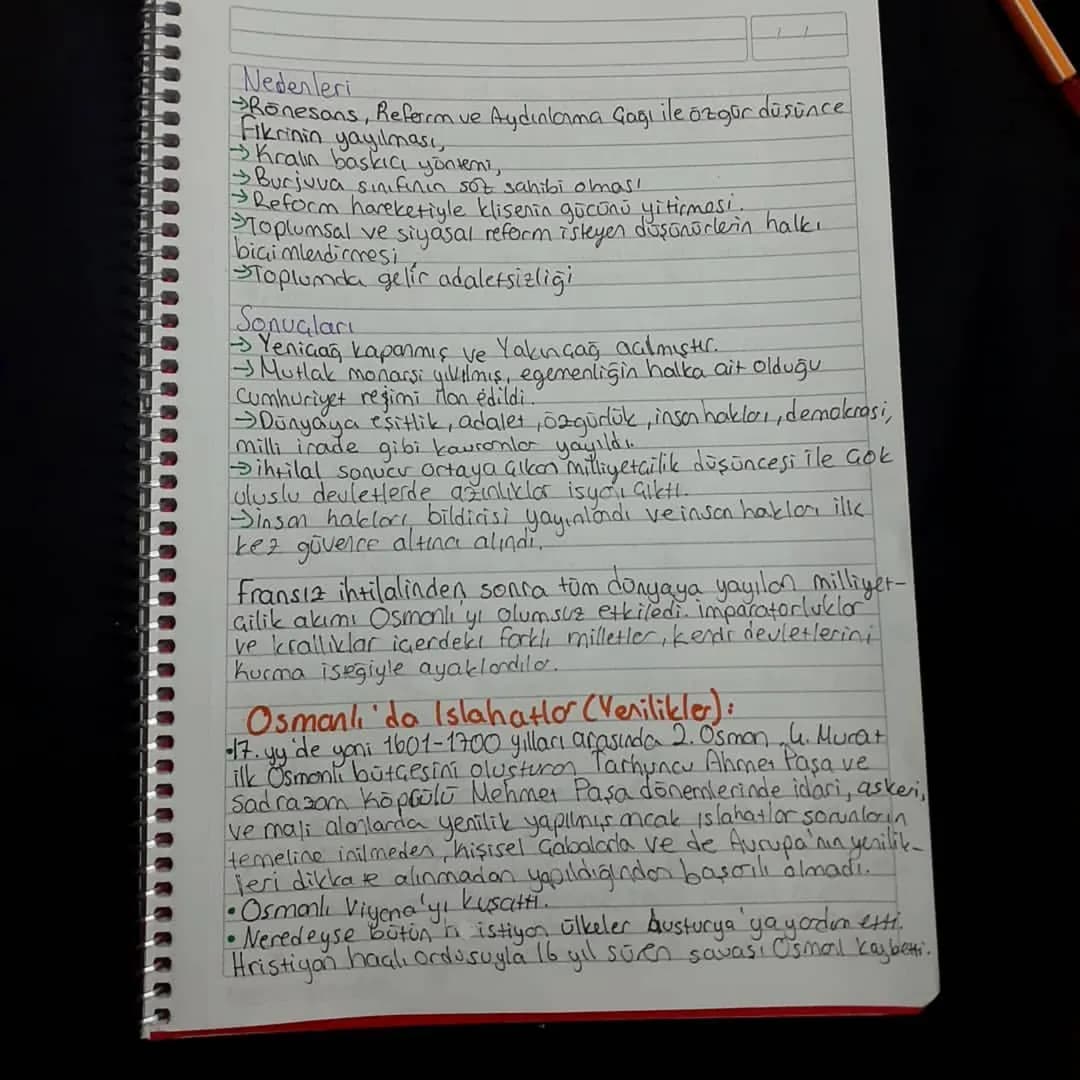 Nedenleri
→Rönesans, Reform ve Aydınlanma Çağı ile özgür düşünce
fikrinin yayılması,
→Kralın baskıcı yönetimi,
→Burjuva sınıfının söz sahibi olması
→Reform hareketiyle klisenin gücünü yitirmesi.
→Toplumsal ve siyasal reform isteyen düşünürlerin halkı
biçimlendirmesi
→Toplumda gelir adaletsizliği
Sonuçları
→Yeniçağ kapanmış ve Yakınçağ açılmıştır.
→Mutlak monarşi yıkılmış, egemenliğin halka ait olduğu
Cumhuriyet rejimi ilan edildi.
→Dünyaya eşitlik, adalet, özgürlük, insan hakları, demokrasi,
milli irade gibi kavramlar yayıldı.
→ihtilal sonucu ortaya çıkan milliyetçilik düşüncesi ile çok
uluslu devletlerde azınlıklar isyanı çıktı.
→insan hakları bildirisi yayınlandı ve insan hakları ilk
kez güvence altına alındı.
Fransız ihtilalinden sonra tüm dünyaya yayılan milliyet-
çilik akımı Osmanlı'yı olumsuz etkiledi. imparatorluklar
ve krallıklar içerdeki farklı milletler, kendi devletlerini
kurma iseğiyle ayaklandılar.
Osmanlı'da Islahatlar (Yenilikler):
•17. yy'de yani 1601-1700 yılları arasında 2. Osman, 4. Murat
ilk Osmanlı bütçesini oluşturan Tarhuncu Ahmet Paşa ve
Sadrazam Köprülü Mehmet Paşa dönemlerinde idari, askeri,
ve mali alanlarda yenilik yapılmış ancak ıslahatlar sorunların
temeline inilmeden, kişisel çabalarla ve de Avrupa'nın yenilik-
leri dikkate alınmadan yapıldığından başarılı olmadı.
• Osmanlı Viyena'yı kuşattı.
• Neredeyse bütün hristiyan ülkeler Avusturya'ya yardım etti.
Hristiyan haçlı ordusuyla 16 yıl süren savaşı Osmanlı kaybetti.